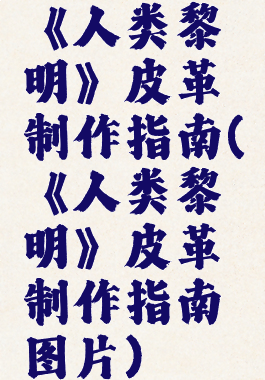 《人类黎
明》皮革
制作指南(
《人类黎
明》皮革
制作指南
图片)